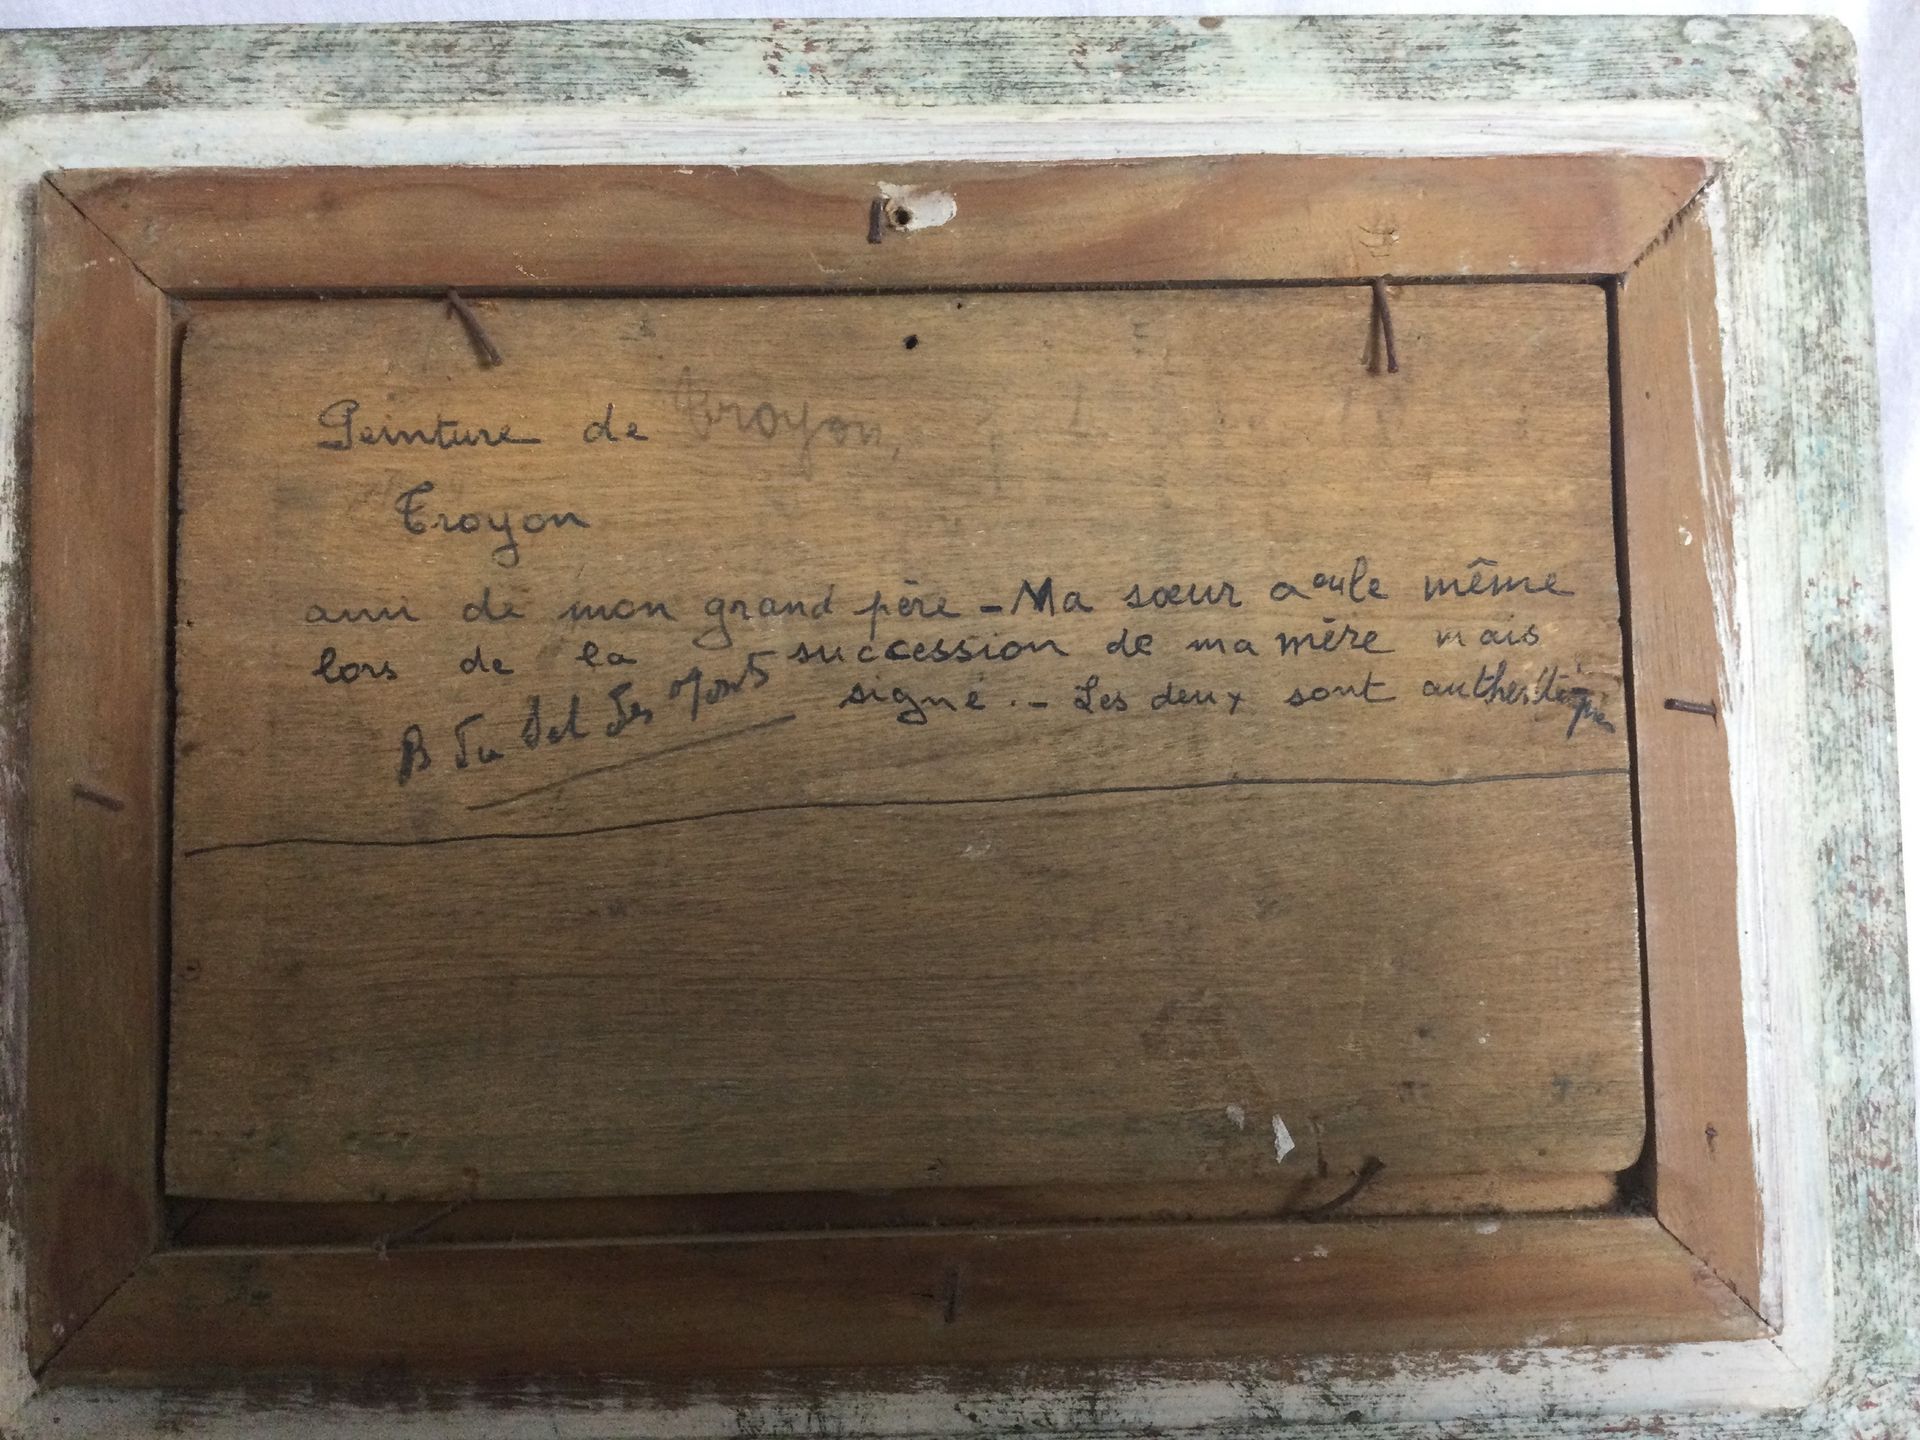 Peinture de Troyon,
Troyon
ami de mon grand père - Ma sœur a eu le même
lors de la succession de ma mère mais
signé. - Les deux sont authentiques
B